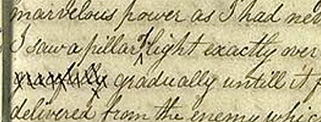 marvelous power as I had nev
I saw a pillar of light exactly over
gradually untill it f
delivered from the enemy whic